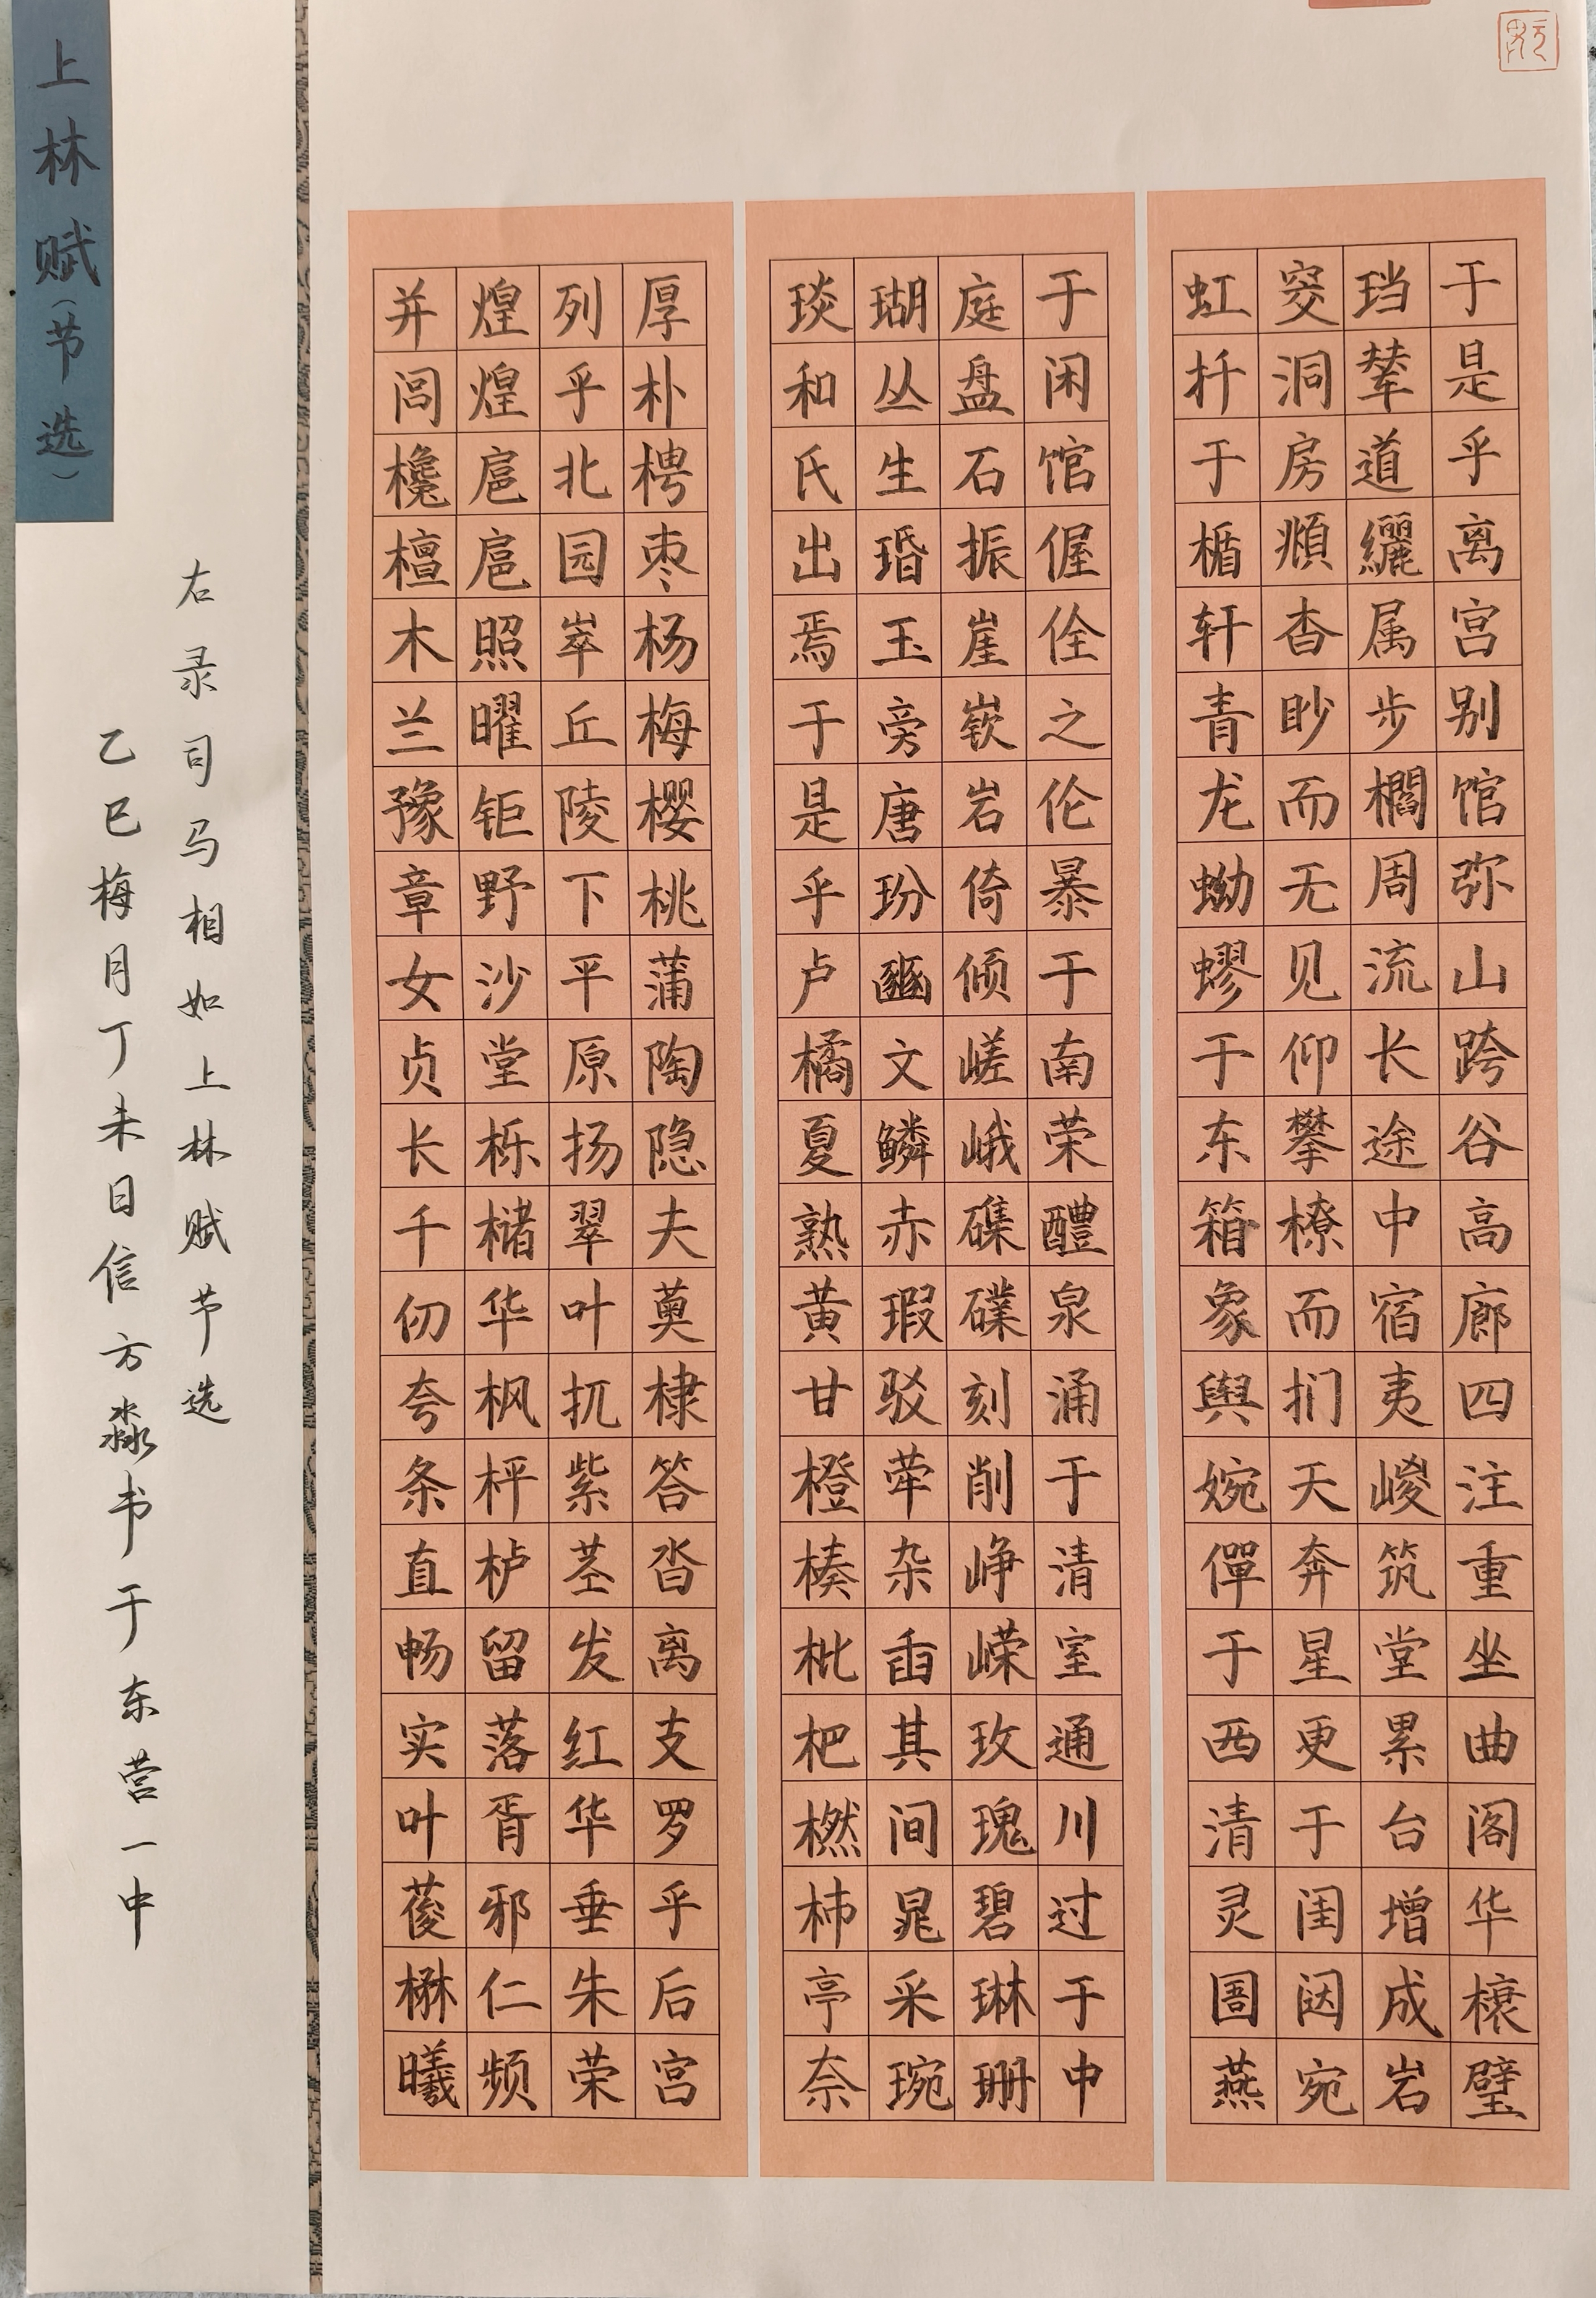 于是乎离宫别馆弥山跨谷高廊四注重坐曲阁华榱璧
珰辇道纚属步櫩周流长途中宿夷嵕筑堂累台增成岩
窔洞房頫杳眇而无见仰攀橑而扪天奔星更于闺闼宛
虹扦于楯轩青龙蚴蟉于东箱象舆婉僤于西清灵圄燕
于闲馆偓佺之伦暴于南荣醴泉涌于清室通川过于中
庭盘石振崖嵚岩倚倾嵯峨磼礏刻削峥嵘玫瑰碧琳珊
瑚丛生瑉玉旁唐玢豳文鳞赤瑕驳荦杂臿其间晁采琬
琰和氏出焉于是乎卢橘夏熟黄甘橙楱枇杷橪柿亭奈
厚朴梬枣杨梅樱桃蒲陶隐夫薁棣答沓离支罗乎后宫
列乎北园崒丘陵下平原扬翠叶扤紫茎发红华垂朱荣
煌煌扈扈照曜钜野沙堂栎槠华枫枰栌留落胥邪仁频
并闾欃檀木兰豫章女贞长千仞夸条直畅实叶葰楙曦
右录司马相如上林赋节选
乙巳梅月丁未日信方淼书于东营一中
上林赋（节选）